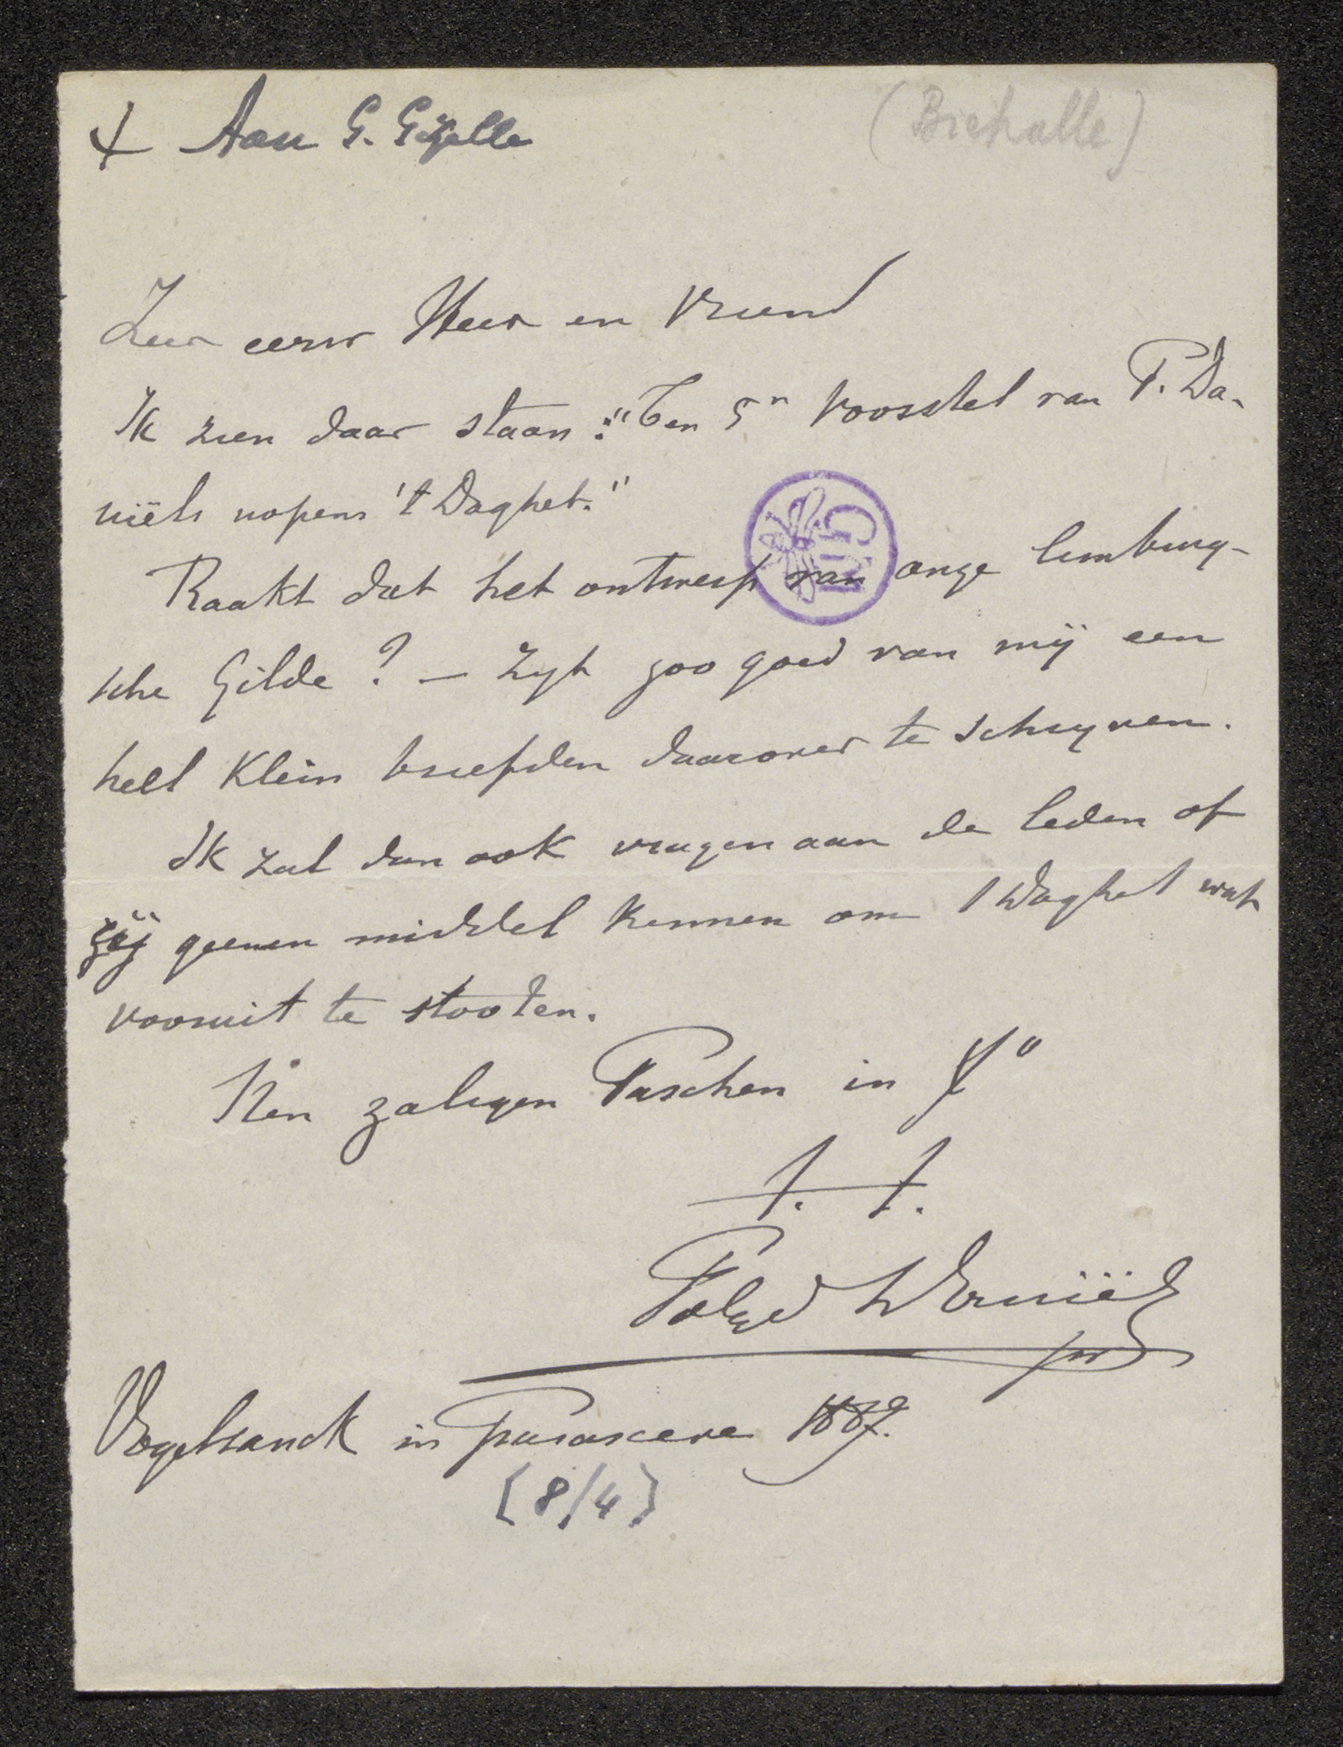 + Aan G. Gezelle
(Biehalle)
Zeer eerw Heer en Vriend
Ik zien daar staan: "Ten 5n Voorstel van P. Da-
niëls nopens 't Daghet."
GM
Raakt dat het ontwerp van onze limburg-
sche Gilde? – Zyt zoo goed van mij een
heel klein briefken daarover te schryven.
Ik zal dan ook vragen aan de leden of
zij geenen middel kennen om 't Daghet wat
vooruit te stooten.
Nen zaligen Paschen in
t. t.
Polyd Daniëls
pr
Vogelsanck in Parasceve 1887.
[8/4]